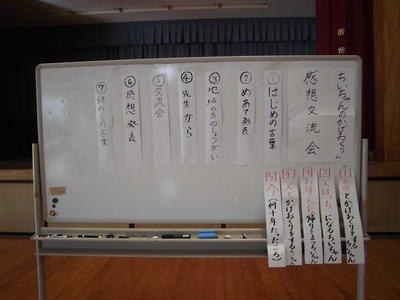 「ちいちゃんのかげおくり」
感想交流会
①はじめの言葉
②めあて発表
③地域の方のしょうかい
④先生から
⑤交流会
⑥感想発表
⑦終わりの言葉
1 とかげおくりをするちいちゃん
2 人ぼっちになるちいちゃん
3 お母さんの帰りをまつちいちゃん
4 一人でかげおくりをするちいちゃん
5 今(何十年たったころ)